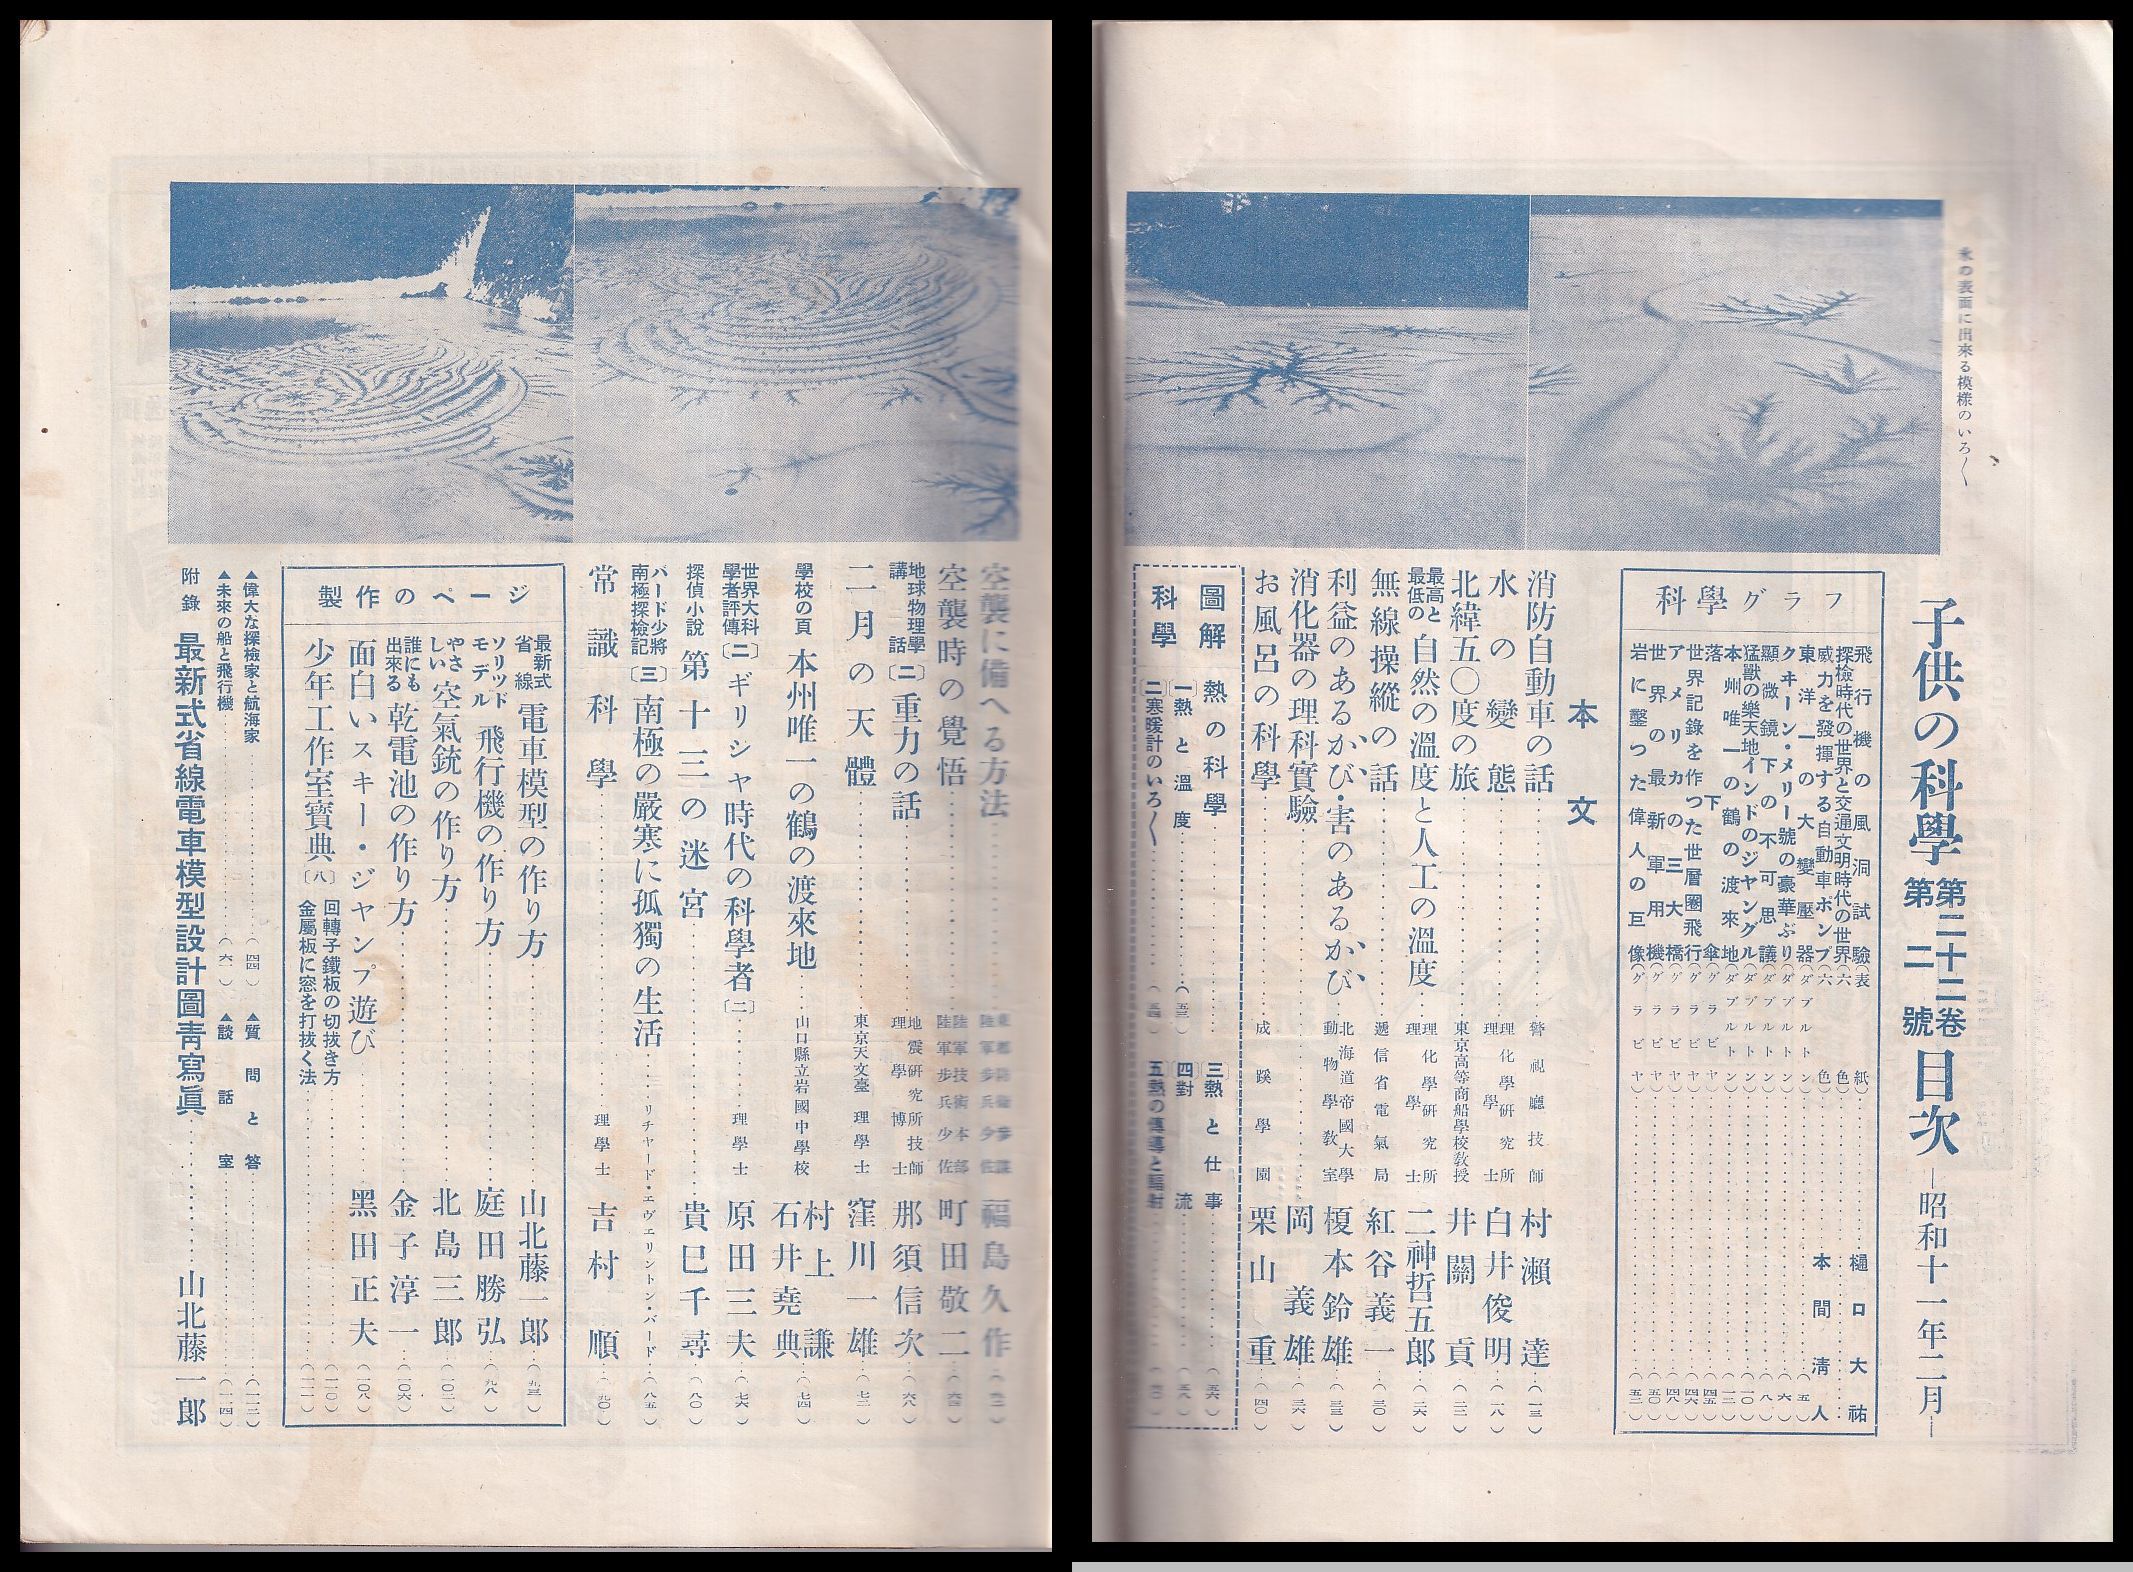 氷の表面に出來る模樣のいろ〱
子供の科學 第二十二卷 第二號 目次 ―昭和十一年二月―
科學グラフ
飛行機の風洞試驗(表紙)
探檢時代の世界と交通文明時代の世界(六色) 樋口大祐
威力を發揮する自動車ポンプ(六色)
東洋一の大變壓器(ダブルトン) 本間淸人(五)
クヰーン・メリー號の豪華ぶり(ダブルトン)(六)
顯微鏡下の不可思議(ダブルトン)(八)
猛獸の樂天地インドのジヤングル(ダブルトン)(一〇)
本州唯一の鶴の渡來地(ダブルトン)(一二)
落下傘(グラビヤ)(四五)
世界記錄を作つた世層圈飛行(グラビヤ)(四六)
アメリカの三大橋(グラビヤ)(四八)
世界の最新軍用機(グラビヤ)(五〇)
岩に鑿つた偉人の巨像(グラビヤ)(五二)
本文
消防自動車の話 警視廳技師 村瀨達(一三)
水の變態 理化學硏究所 理學士 白井俊明(一八)
北緯五〇度の旅 東京高等商船學校敎授 井關貢(二二)
最高と最低の 自然の溫度と人工の溫度 理化學硏究所 理學士 二神哲五郎(二六)
無線操縱の話 遞信省電氣局 紅谷義一(三〇)
利益のあるかび・害のあるかび 北海道帝國大學 動物學敎室 榎本鈴雄(三三)
消化器の理科實驗 岡義雄(三六)
お風呂の科學 成蹊學園 栗山重(四〇)
圖解科學 熱の科學
〔一〕熱と溫度(五三)
〔二〕寒暖計のいろ〱(五四)
〔三〕熱と仕事(五六)
〔四〕對流(五八)
〔五〕熱の傳導と輻射
空襲に備へる方法 福島久作
空襲時の覺悟 陸軍技術本部 陸軍步兵少佐 町田敬二(六四)
地球物理學講話〔二〕 重力の話 地震硏究所技師 理學博士 那須信次(六八)
二月の天體 東京天文臺 理學士 窪川一雄(七二)
學校の頁 本州唯一の鶴の渡來地 山口縣立岩國中學校 村上謙 石井堯典(七四)
世界大科學者評傳〔二〕 ギリシヤ時代の科學者〔二〕 理學士 原田三夫(七六)
探偵小說 第十三の迷宮 貴巳千尋(八〇)
バード少將南極探檢記〔三〕 南極の嚴寒に孤獨の生活 リチヤード・エヴエリントン・バード(八五)
常識科學 理學士 吉村順(九〇)
製作のページ
最新式省線 電車模型の作り方 山北藤一郎(九三)
ソリッドモデル 飛行機の作り方 庭田勝弘(九八)
やさしい 空氣銃の作り方 北島三郎(一〇二)
誰にも出來る 乾電池の作り方 金子淳一(一〇六)
面白いスキー・ジヤンプ遊び 黑田正夫(一〇八)
少年工作室寶典〔八〕
回轉子鐵板の切拔き方(一一〇)
金屬板に窓を打拔く法(一一一)
▲偉大な探檢家と航海家(四四)
▲質問と答(一一二)
▲未來の船と飛行機(六一)
▲談話室(一一四)
附錄 最新式省線電車模型設計圖靑寫眞 山北藤一郎